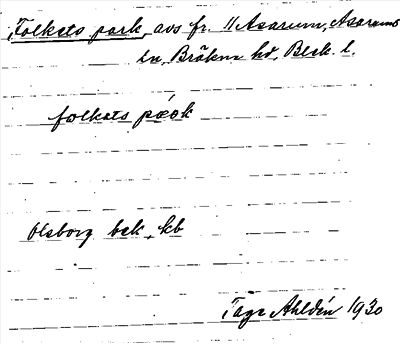 Folkets park, avs fr. 11 Asarum, Asarums
sn, Bräkne hd, Blek. l.
folkets pœok
Olsborg bek, kb
Tage Ahldén 1930